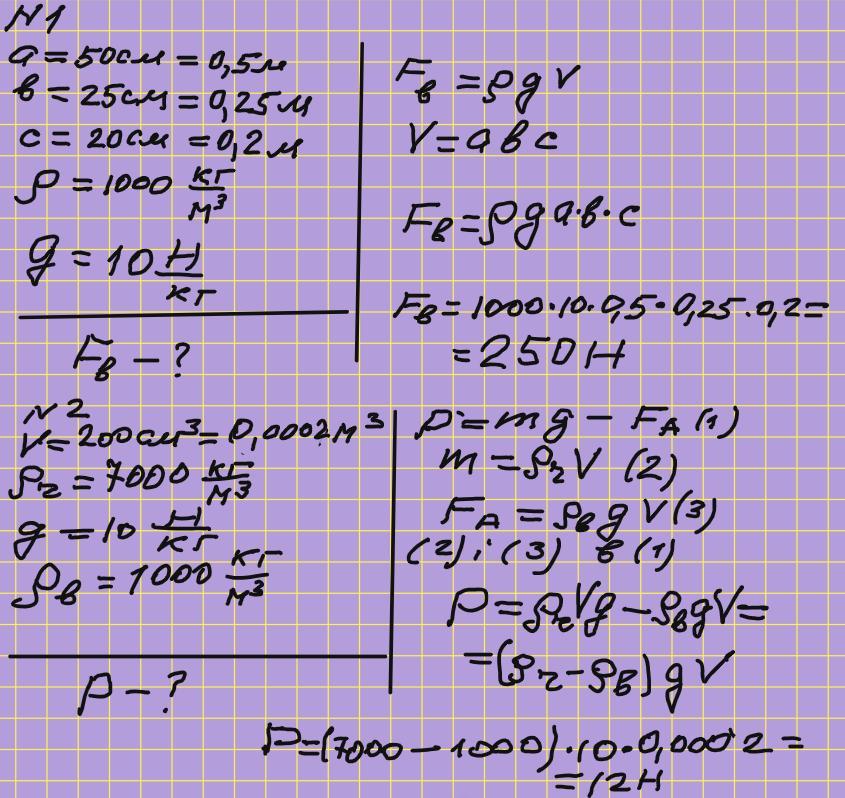 N1
a = 50см = 0,5м
в = 25см = 0,25м
c = 20см = 0,2м
ρ = 1000 кг/м³
g = 10 Н/кг
Fв – ?
Fв = ρgV
V = a в c
Fв = ρg a·в·c
Fв = 1000·10·0,5·0,25·0,2 =
= 250 Н
N2
V = 200см³ = 0,0002м³
ρг = 7000 кг/м³
g = 10 Н/кг
ρв = 1000 кг/м³
P – ?
P = mg – FA (1)
m = ρгV (2)
FA = ρв g V (3)
(2) і (3) в (1)
P = ρгVg – ρвgV =
= (ρг – ρв) g V
P = (7000 – 1000)·10·0,0002 =
= 12Н